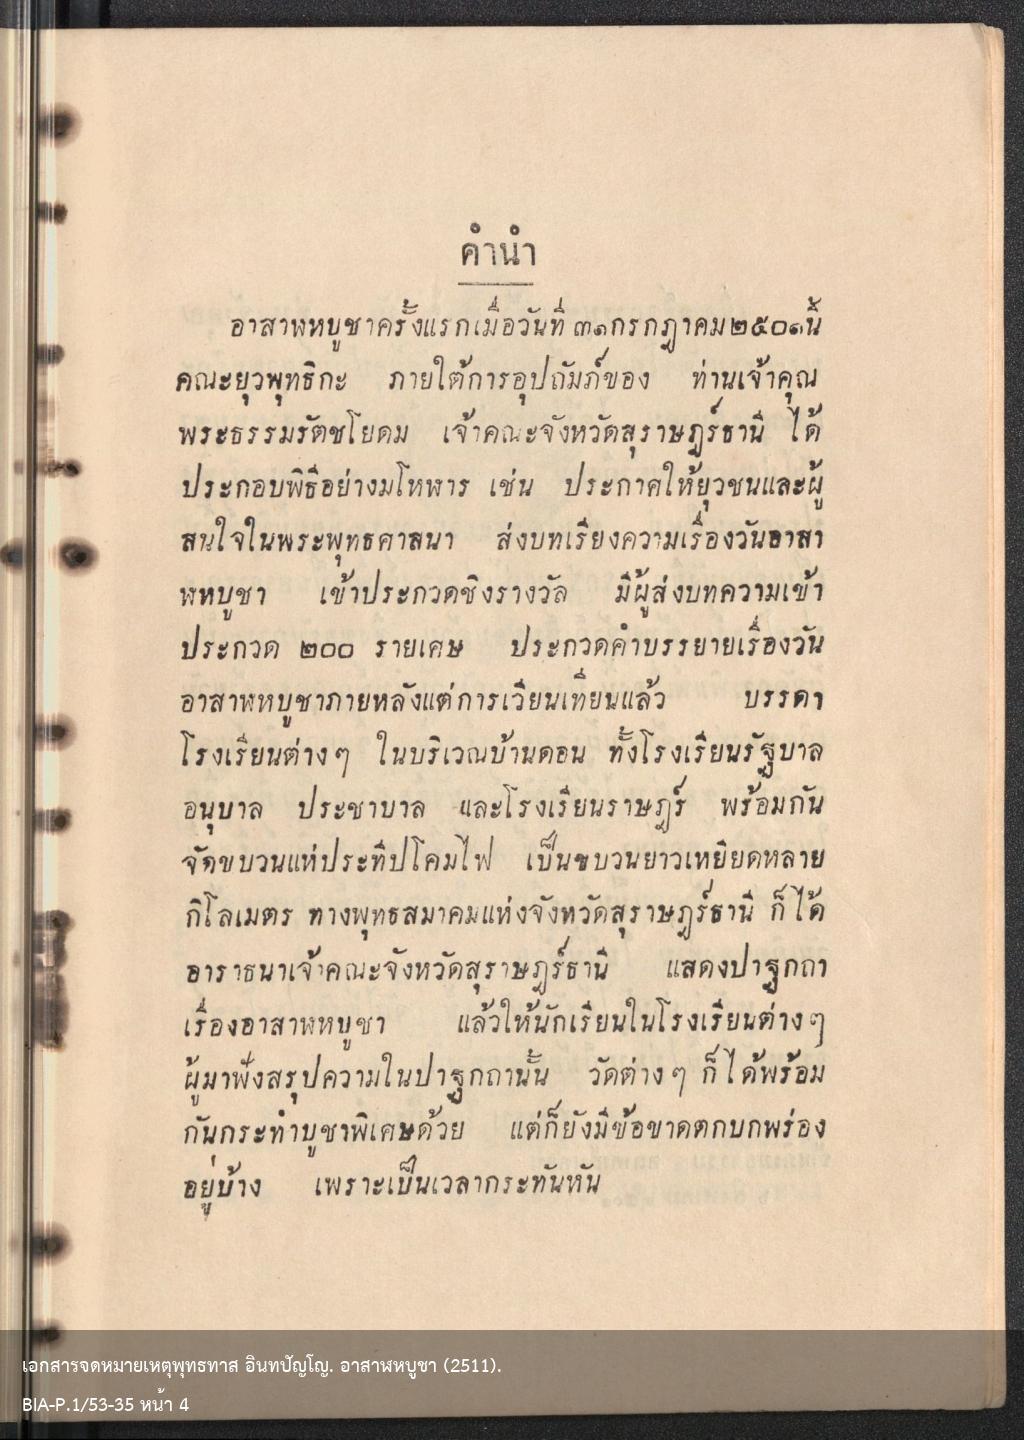 คำนำ
อาสาฬหบูชาครั้งแรกเมื่อวันที่ ๓๑กรกฎาคม๒๕๐๑นี้
คณะยุวพุทธิกะ ภายใต้การอุปถัมภ์ของ ท่านเจ้าคุณ
พระธรรมรัตชโยดม เจ้าคณะจังหวัดสุราษฎร์ธานี ได้
ประกอบพิธีอย่างมโหฬาร เช่น ประกาศให้ยุวชนและผู้
สนใจในพระพุทธศาสนา ส่งบทเรียงความเรื่องวันอาสา
ฬหบูชา เข้าประกวดชิงรางวัล มีผู้ส่งบทความเข้า
ประกวด ๒๐๐ รายเศษ ประกวดคำบรรยายเรื่องวัน
อาสาฬหบูชาภายหลังแต่การเวียนเทียนแล้ว บรรดา
โรงเรียนต่างๆ ในบริเวณบ้านดอน ทั้งโรงเรียนรัฐบาล
อนุบาล ประชาบาล และโรงเรียนราษฎร์ พร้อมกัน
จัดขบวนแห่ประทีปโคมไฟ เป็นขบวนยาวเหยียดหลาย
กิโลเมตร ทางพุทธสมาคมแห่งจังหวัดสุราษฎร์ธานี ก็ได้
อาราธนาเจ้าคณะจังหวัดสุราษฎร์ธานี แสดงปาฐกถา
เรื่องอาสาฬหบูชา แล้วให้นักเรียนในโรงเรียนต่างๆ
ผู้มาฟังสรุปความในปาฐกถานั้น วัดต่างๆ ก็ได้พร้อม
กันกระทำบูชาพิเศษด้วย แต่ก็ยังมีข้อขาดตกบกพร่อง
อยู่บ้าง เพราะเป็นเวลากระทันหัน
เอกสารจดหมายเหตุพุทธทาส อินทปัญโญ. อาสาฬหบูชา (2511).
BIA-P.1/53-35 หน้า 4